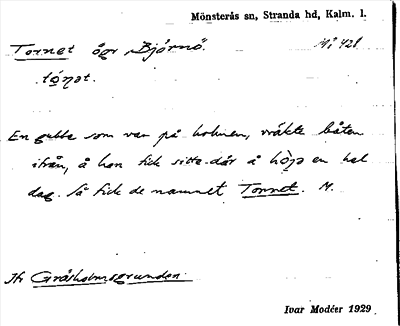 Mönsterås sn, Stranda hd, Kalm. l.
Tornet ögr Björnö.
tó̱ṇət.
En gubbe som var på holmen, vräkte båten
ifrån, å han fick sitta där å hòjta en hel
dag. Så fick de namnet Tornet. M.
Jfr Gråsholmsgrunden.
Ivar Modéer 1929